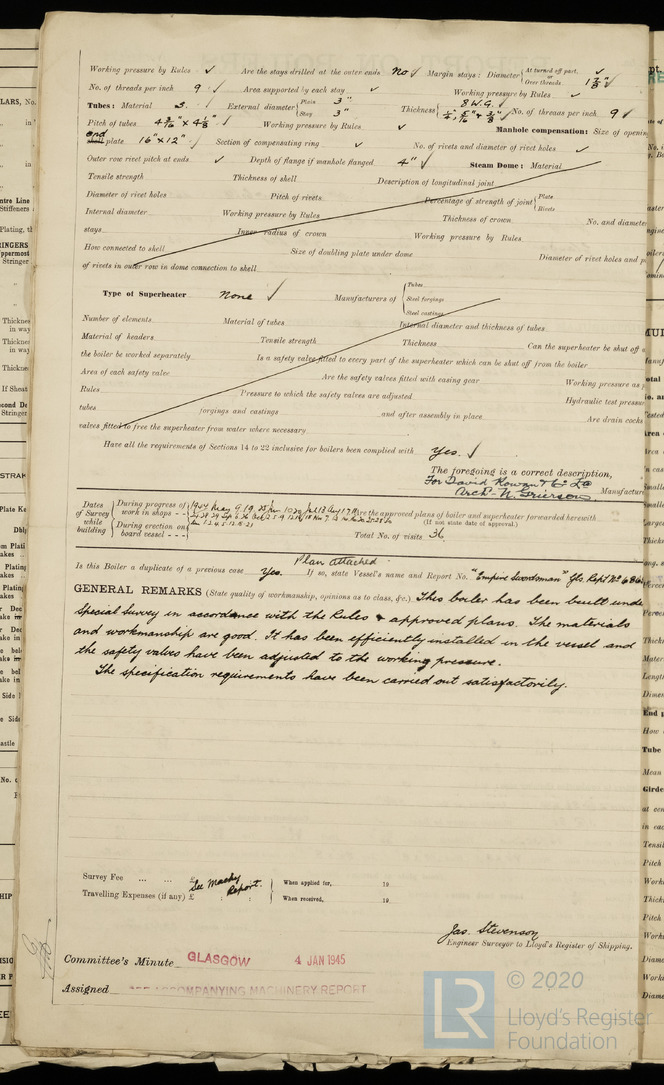 Working pressure by Rules ✓ Are the stays drilled at the outer ends No ✓ Margin stays: Diameter { At turned off part, ✓ or Over threads 1⅞" ✓
No. of threads per inch 9 ✓ Area supported by each stay ✓ Working pressure by Rules ✓
Tubes: Material S. ✓ External diameter { Plain 3" Stay 3" Thickness { 8 W.G. ✓ ¼", 5/16" & 3/8" ✓ No. of threads per inch 9 ✓
Pitch of tubes 4 3/16" x 4 1/8" ✓ Working pressure by Rules ✓ Manhole compensation: Size of opening
end shell plate 16" x 12" ✓ Section of compensating ring ✓ No. of rivets and diameter of rivet holes ✓
Outer row rivet pitch at ends ✓ Depth of flange if manhole flanged 4" ✓ Steam Dome: Material
Tensile strength Thickness of shell Description of longitudinal joint
Diameter of rivet holes Pitch of rivets Percentage of strength of joint { Plate Rivets
Internal diameter Working pressure by Rules Thickness of crown No. and diameter
stays Inner radius of crown Working pressure by Rules
How connected to shell Size of doubling plate under dome Diameter of rivet holes and
of rivets in outer row in dome connection to shell
Type of Superheater None ✓ Manufacturers of { Tubes Steel forgings Steel castings
Number of elements Material of tubes Internal diameter and thickness of tubes
Material of headers Tensile strength Thickness Can the superheater be shut off
the boiler be worked separately Is a safety valve fitted to every part of the superheater which can be shut off from the boiler
Area of each safety valve Are the safety valves fitted with easing gear Working pressure as
Rules Pressure to which the safety valves are adjusted Hydraulic test pressure
tubes forgings and castings and after assembly in place Are drain cocks
valves fitted to free the superheater from water where necessary
Have all the requirements of Sections 14 to 22 inclusive for boilers been complied with Yes. ✓
The foregoing is a correct description,
For David Rowan & Co Ld
Arch. N. Grierson Manufacturer
Dates of Survey while building { During progress of work in shops - - During erection on board vessel - - -
Are the approved plans of boiler and superheater forwarded herewith
(If not state date of approval.)
Total No. of visits 36
Plan attached
Is this Boiler a duplicate of a previous case Yes. If so, state Vessel's name and Report No. "Empire Swordsman" Gls Rept No
GENERAL REMARKS (State quality of workmanship, opinions as to class, &c.) This boiler has been built under
Special Survey in accordance with the Rules & approved plans. The materials
and workmanship are good. It has been efficiently installed in the vessel and
the safety valves have been adjusted to the working pressure.
The specification requirements have been carried out satisfactorily.
Survey Fee ... ... £ See Machy Report. When applied for, 19
Travelling Expenses (if any) £ : : When received, 19
Jas. Stevenson
Engineer Surveyor to Lloyd's Register of Shipping.
Committee's Minute GLASGOW 4 JAN 1945
Assigned SEE ACCOMPANYING MACHINERY REPORT
LR © 2020
Lloyd's Register
Foundation